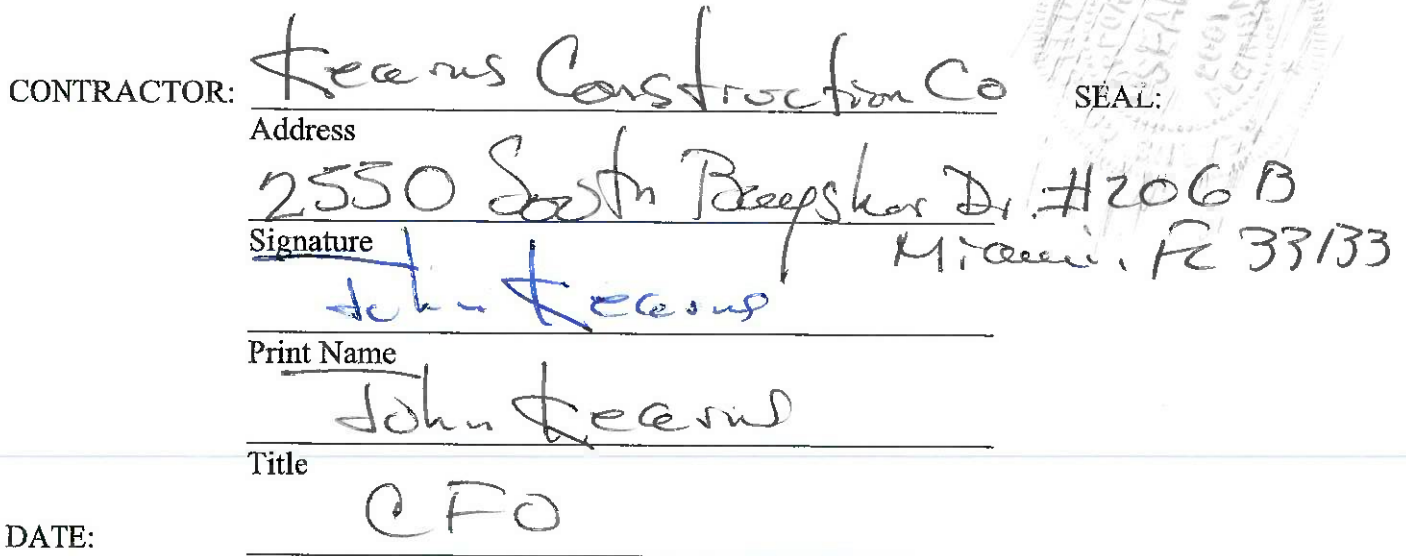 CONTRACTOR: Kearns Construction Co SEAL:
Address
2550 South Bayshor Dr. #206 B
Miami, FL 33133
Signature
John Kearns
Print Name
John Kearns
Title
CFO
DATE: